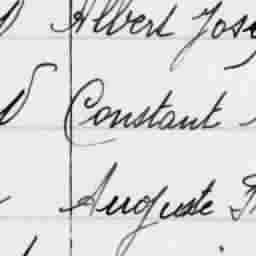 Albert Jos
Constant
Auguste